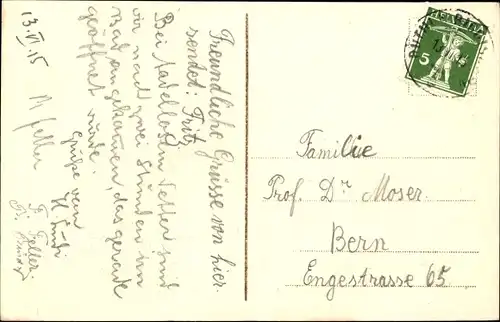 13.VI.15
Freundliche Grüsse von hier.
sendet: Fritz
Bei tadellosem Wetter sind
wir nach zwei Stunden im
Bad angekommen, das gerade
geöffnet wurde.
Grüße vom
F. Feller.
Familie
Prof. Dr Moser.
Bern
Engestrasse 65
5